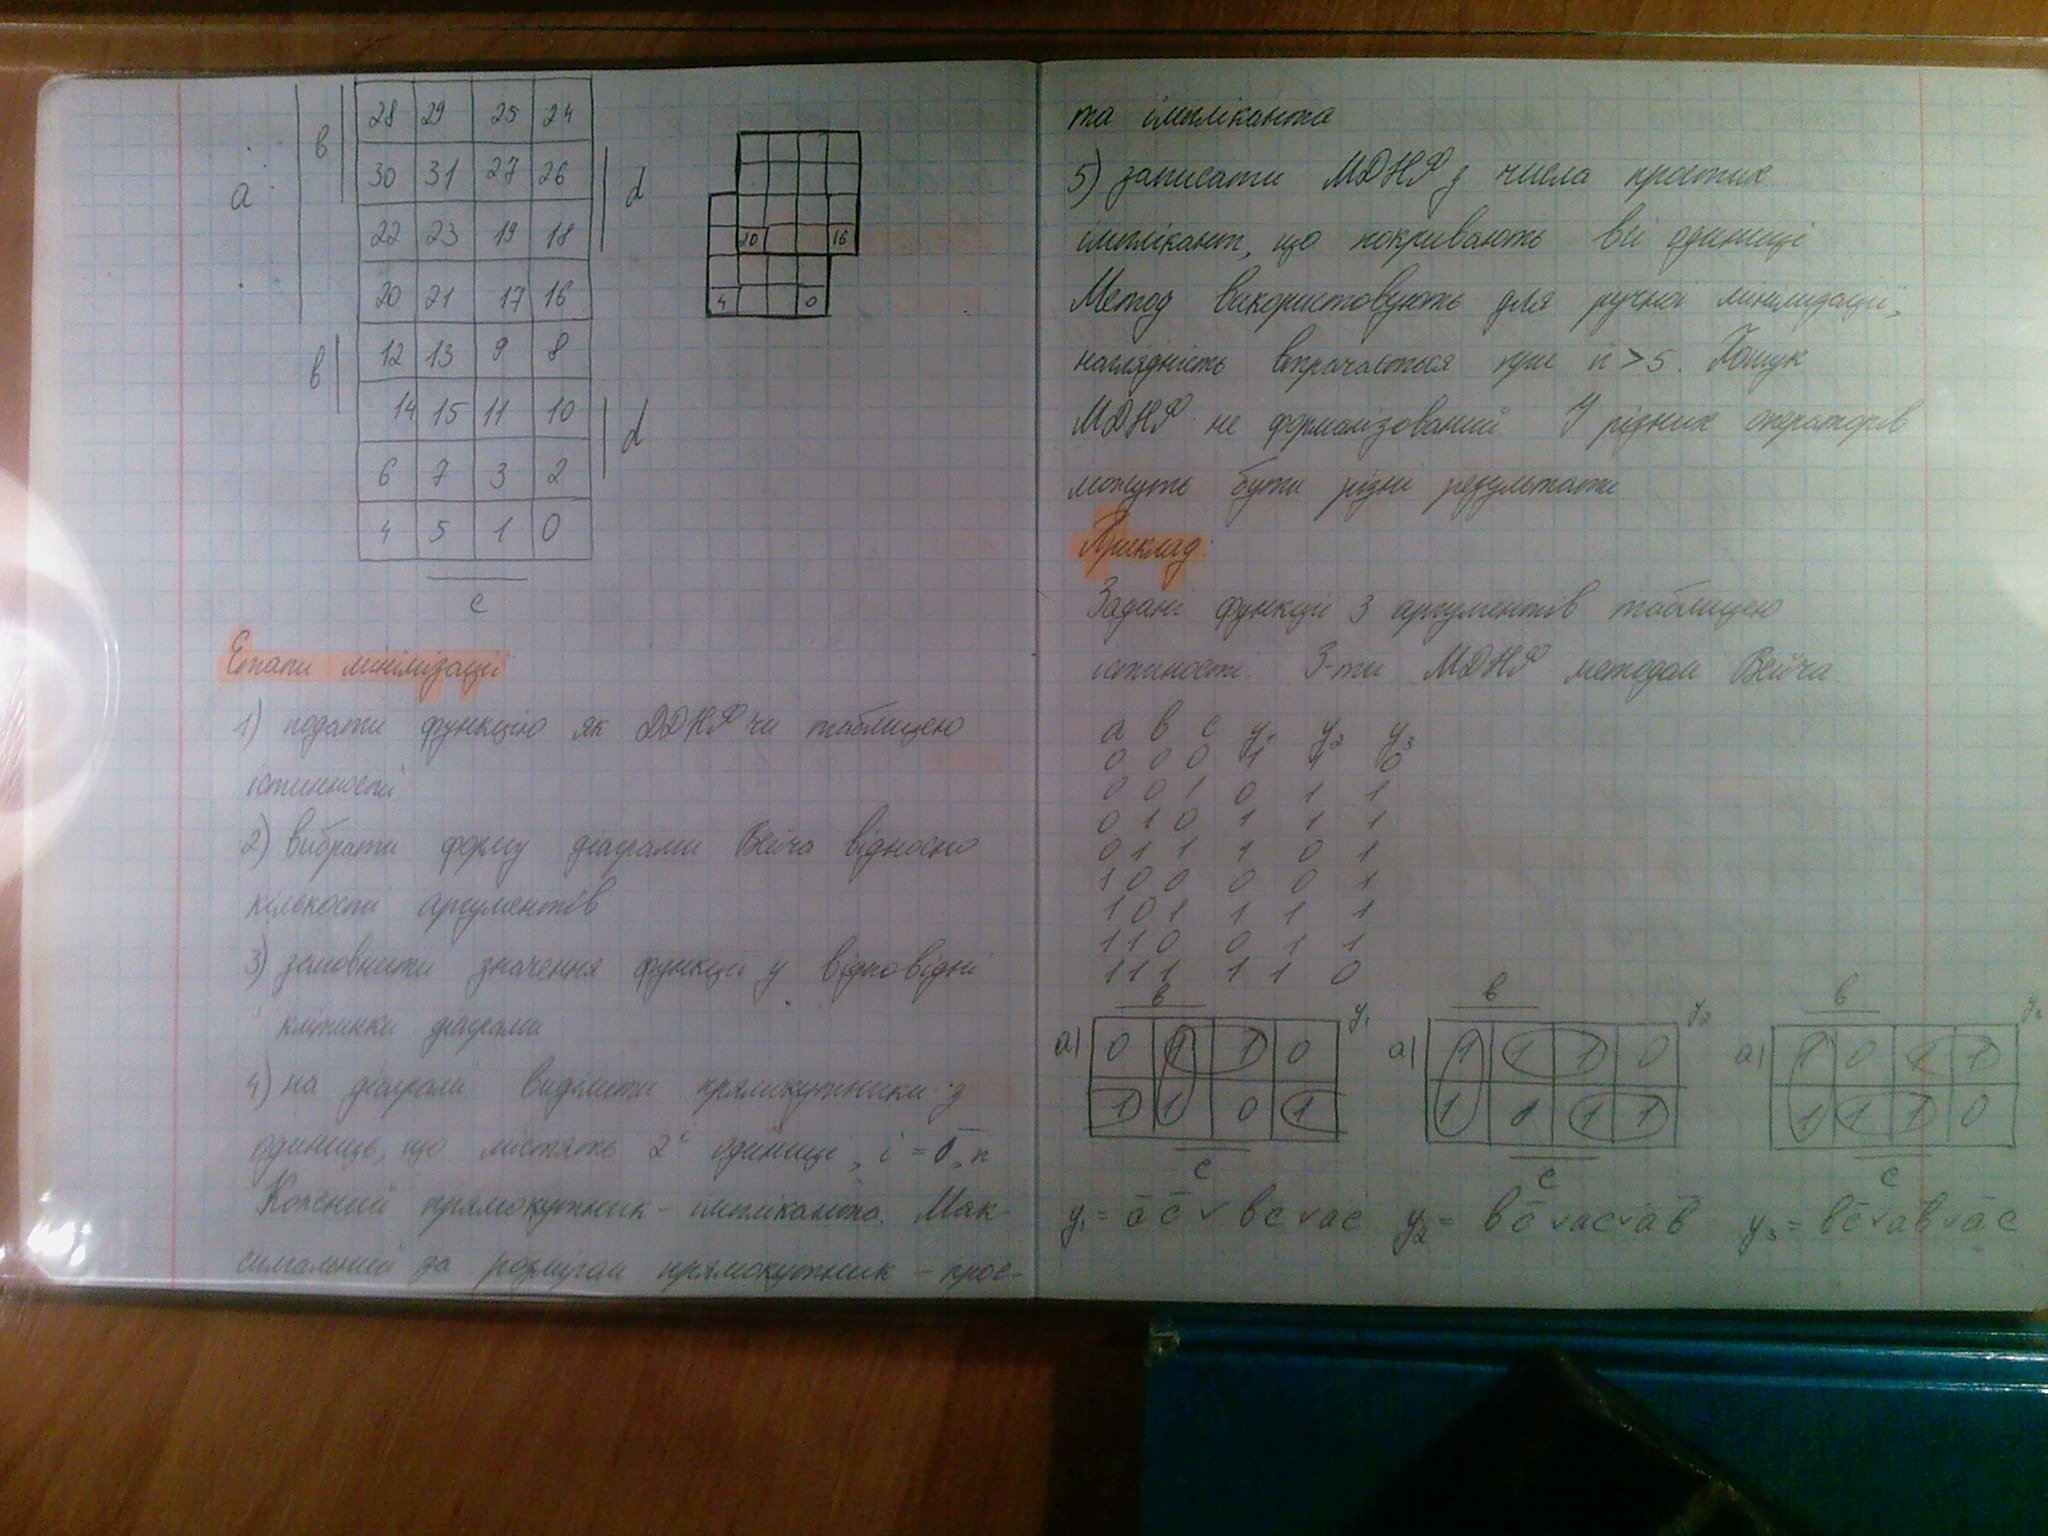 28 29 25 24
в
30 31 27 26
а
d
22 23 19 18
20 21 17 16
12 13 9 8
в
14 15 11 10
d
6 7 3 2
4 5 1 0
с
20 16
4 0
Етапи мінімізації
1) подати функцію як ДДНФ чи таблицею
істинності
2) вибрати форму діаграми Вейча відносно
кількості аргументів
3) заповнити значення функції у відповідні
клітинки діаграми
4) на діаграмі виділити прямокутники з
одиниць, що містять 2ⁱ одиниці, i = 0, n
Кожний прямокутник - імпліканта. Мак-
симальний за розміром прямокутник - прос-
та імпліканта
5) записати МДНФ з числа простих
імплікант, що покривають всі одиниці
Метод використовують для ручної мінімізації,
наглядність втрачається при n > 5. Пошук
МДНФ не формалізований. У різних операторів
можуть бути різні результати
Приклад:
Задані функції 3 аргументів таблицею
істиності. З-ти МДНФ методом Вейча.
а в с у₁ у₂ у₃
0 0 0 1 1 0
0 0 1 0 1 1
0 1 0 1 1 1
0 1 1 1 0 1
1 0 0 0 0 1
1 0 1 1 1 1
1 1 0 0 1 1
1 1 1 1 1 0
в в в
а| 0 1 1 0 у₁ а| 1 1 1 0 у₂ а| 1 0 1 1 у₃
1 1 0 1 1 0 1 1 1 1 1 0
с с с
у₁ = а̄ с̄ ∨ вс ∨ ас у₂ = в с̄ ∨ ас ∨ а̄ в̄ у₃ = в с̄ ∨ а в̄ ∨ а̄ с